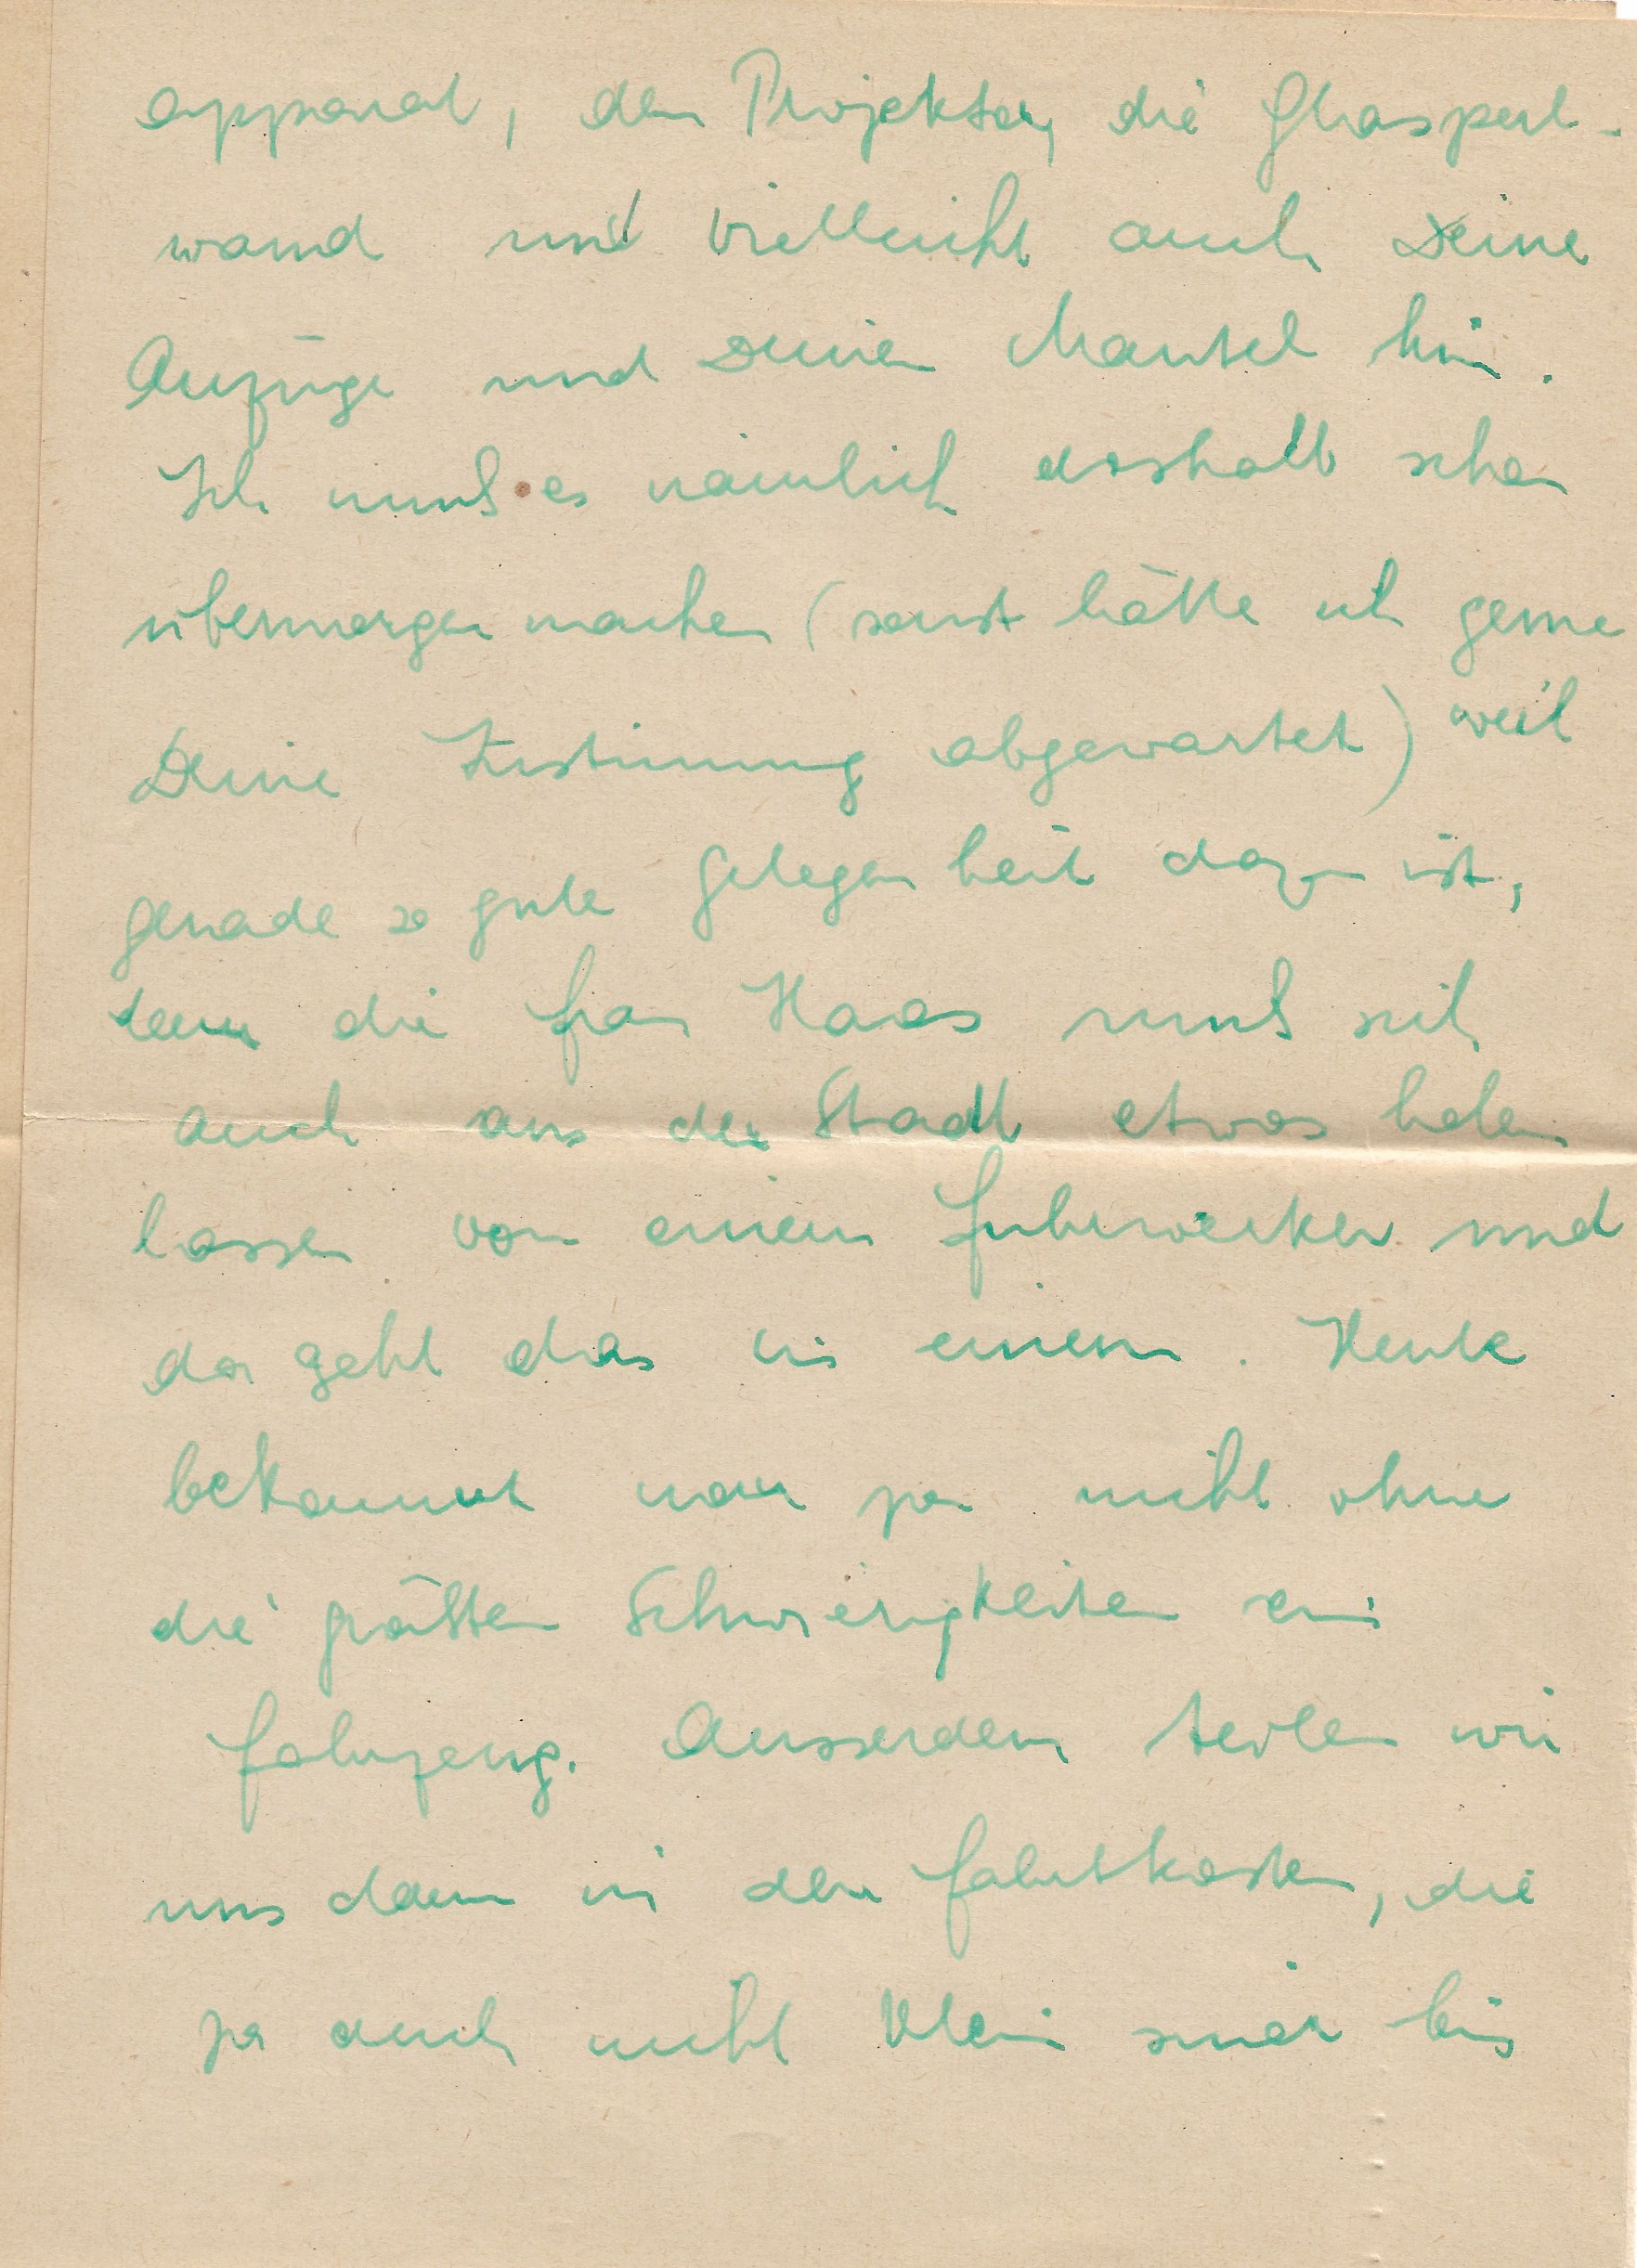 apparat, den Projektor, die Glasperl-
wand und vielleicht auch Deine
Anzüge und Deinen Mantel hin.
Ich muß es nämlich deshalb schon
übermorgen machen (sonst hätte ich gerne
Deine Zustimmung abgewartet) weil
gerade so gute Gelegenheit dazu ist,
denn die Frau Haas muß sich
auch aus der Stadt etwas holen
lassen von einem Fuhrwerker und
da geht das in einem. Heute
bekommt man ja nicht ohne
die größten Schwierigkeiten ein
Fahrzeug. Ausserdem teilen wir
uns dann in den Fahrtkosten, die
ja auch nicht klein sind bis